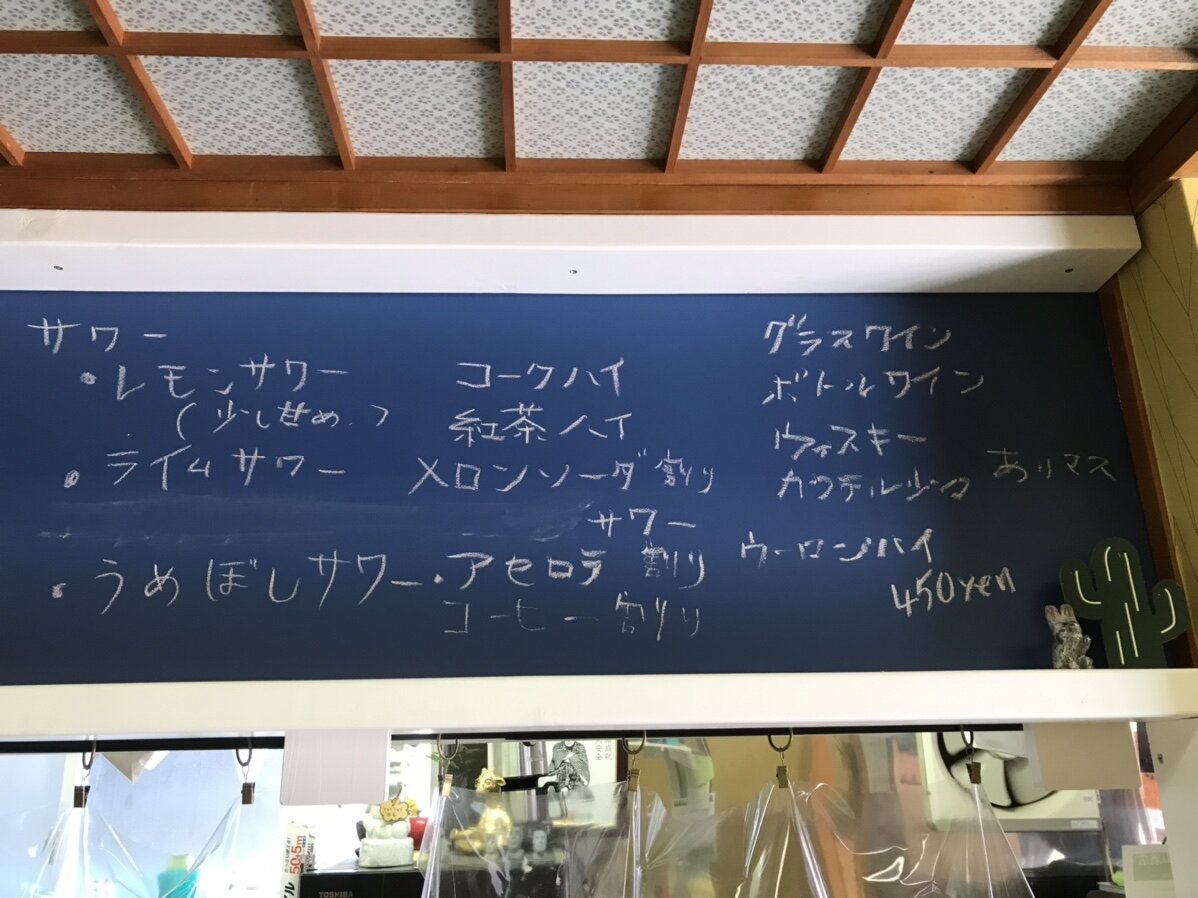 サワー
・レモンサワー
(少し甘め.)
・ライムサワー
・うめぼしサワー
コークハイ
紅茶ハイ
メロンソーダ割り
サワー
・アセロラ割り
コーヒー割り
グラスワイン
ボトルワイン
ウィスキー
カクテル少々 ありマス
ウーロンハイ
450yen
50.5m
TOSHIBA